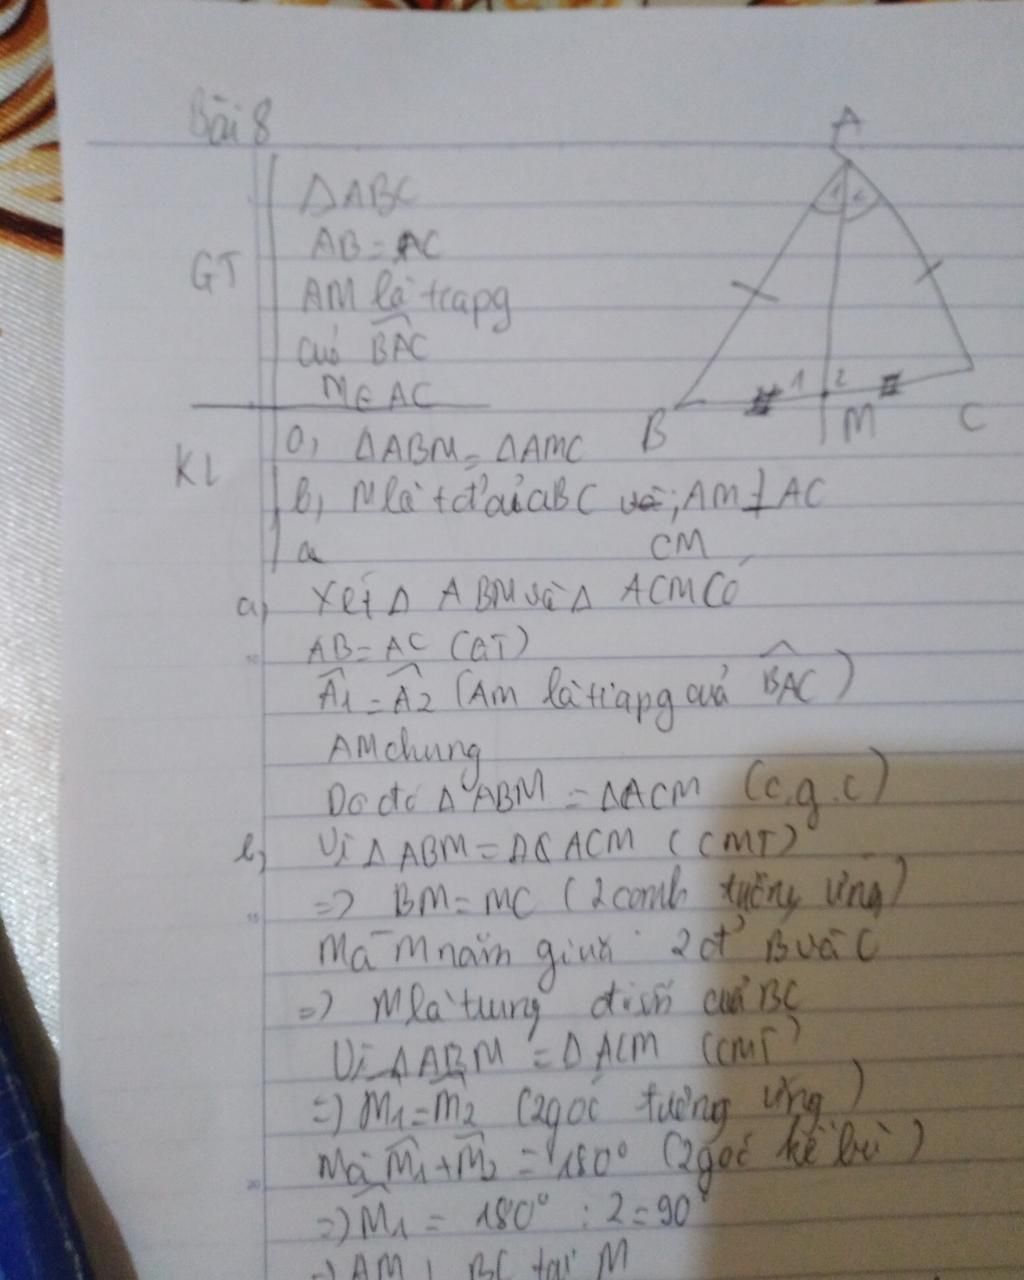 Bài 8
A
ΔABC
AB = AC
GT
AM là tiapg
1 2
của BAC
M∈AC
1 2
B M C
KL
a, ΔABM = ΔAMC
b, M là tđ' củaBC và; AM ⊥ AC
a
CM
a, Xét Δ ABM và Δ ACM Có
AB = AC (GT)
Â1 = Â2 (Am là tiapg củả BAC)
AM chung
Do đó ΔABM = ΔACM (c.g.c)
b, Vì ΔABM = ACM (CMT)
=> BM = MC (2 cạnh tương ứng)
Mà M nằm giữa 2 đ' B và C
=> M là trung điểm củả BC
Vì ΔABM = ΔACM (CMT)
=> M1 = M2 (2góc tương ứng)
Mà M1 + M2 = 180° (2góc kề bù)
=> M1 = 180° : 2 = 90°
=> AM ⊥ BC tại M